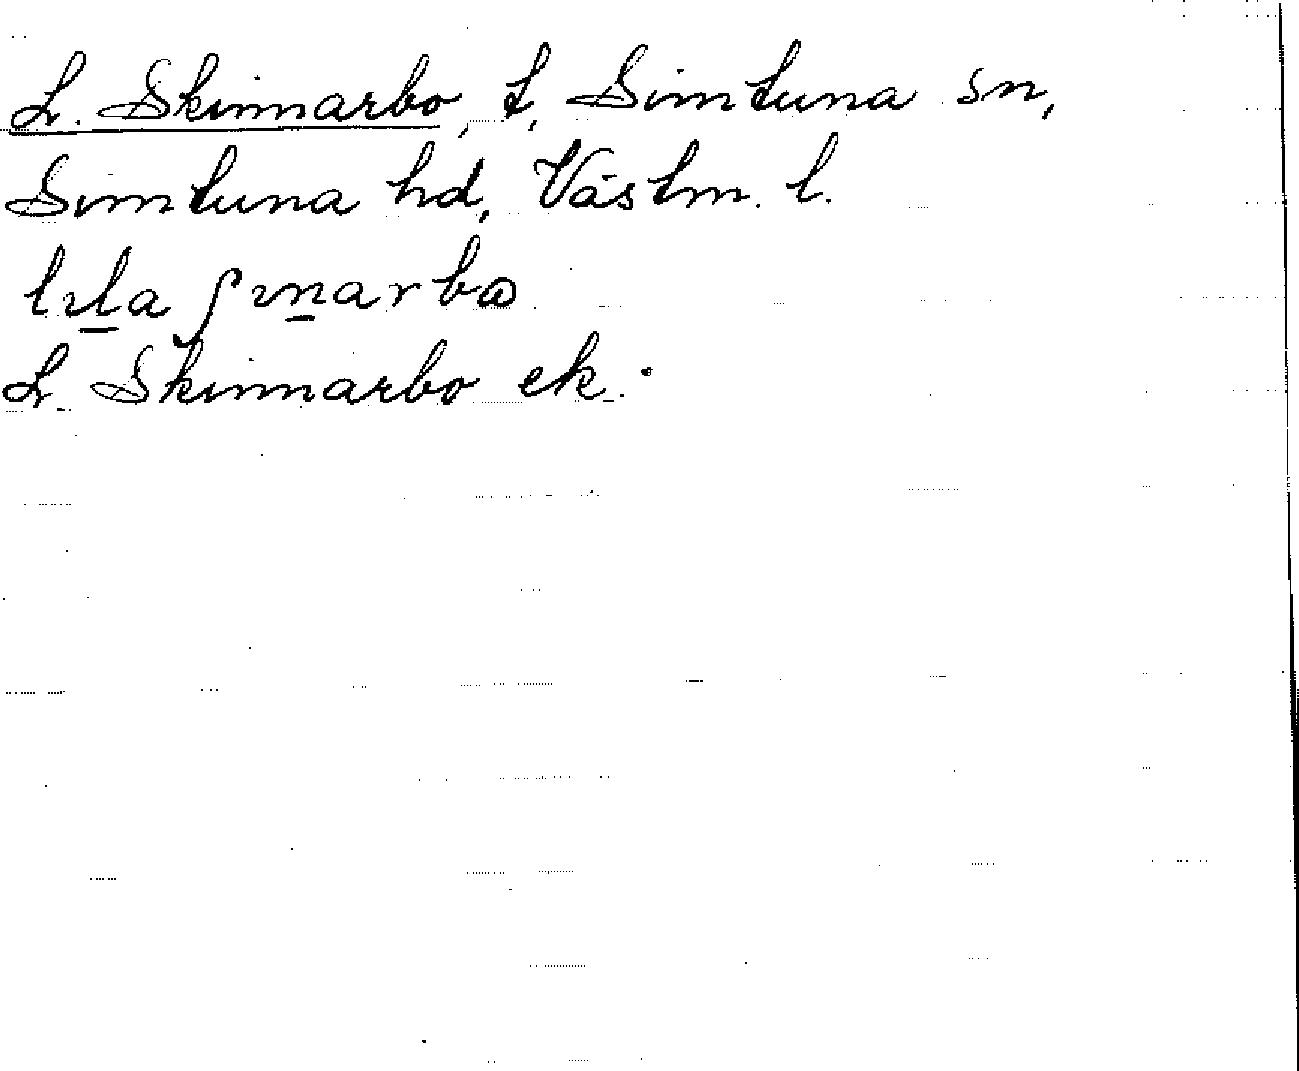 L. Skinnarbo, t, Simtuna sn,
Simtuna hd, Västm. l.
lıla ʃınarbo
L. Skinnarbo ek.